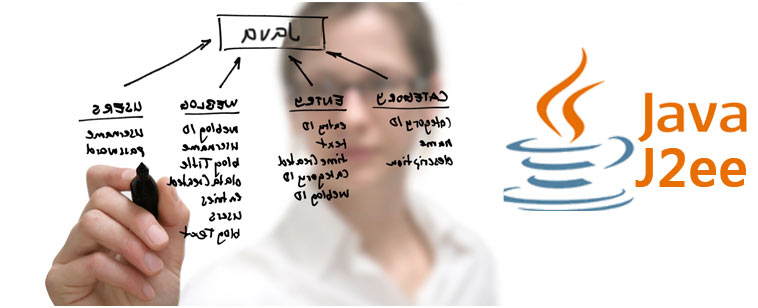 Java
USERS
username
password
WEBLOG
weblog ID
username
blog Title
dataCreated
Entries
users
blog Text
ENTRY
entry ID
text
timeCreated
Category ID
weblog ID
CATEGORY
Category ID
name
description
Java
J2ee